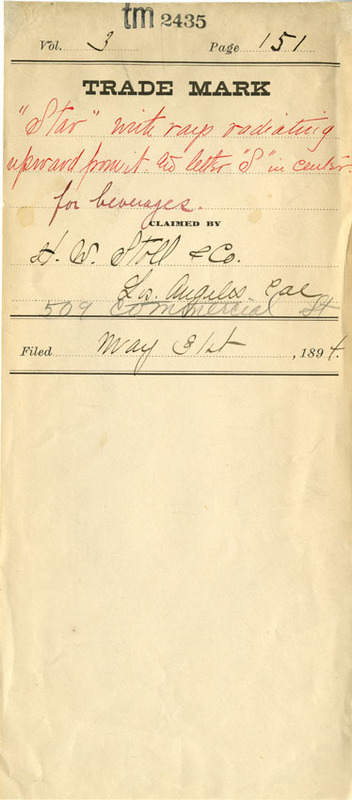 tm 2435
Vol. 3 Page 151
TRADE MARK
"Star" with rays radiating
upward from it. & letter "S" in center.
for beverages.
CLAIMED BY
H. W. Stoll & Co.
Los Angeles Cal
509 Commercial St
Filed May 31st, 1894.